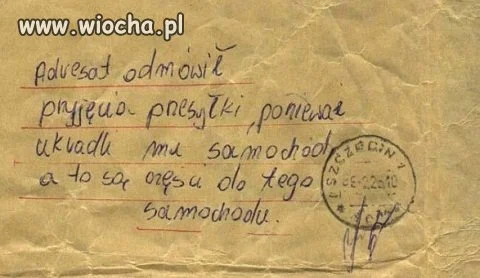 www.wiocha.pl
Adresat odmówił
przyjęcia przesyłki, ponieważ
ukradli mu samochód,
a to są częsu do tego
samochodu.
SZCZECIN 1